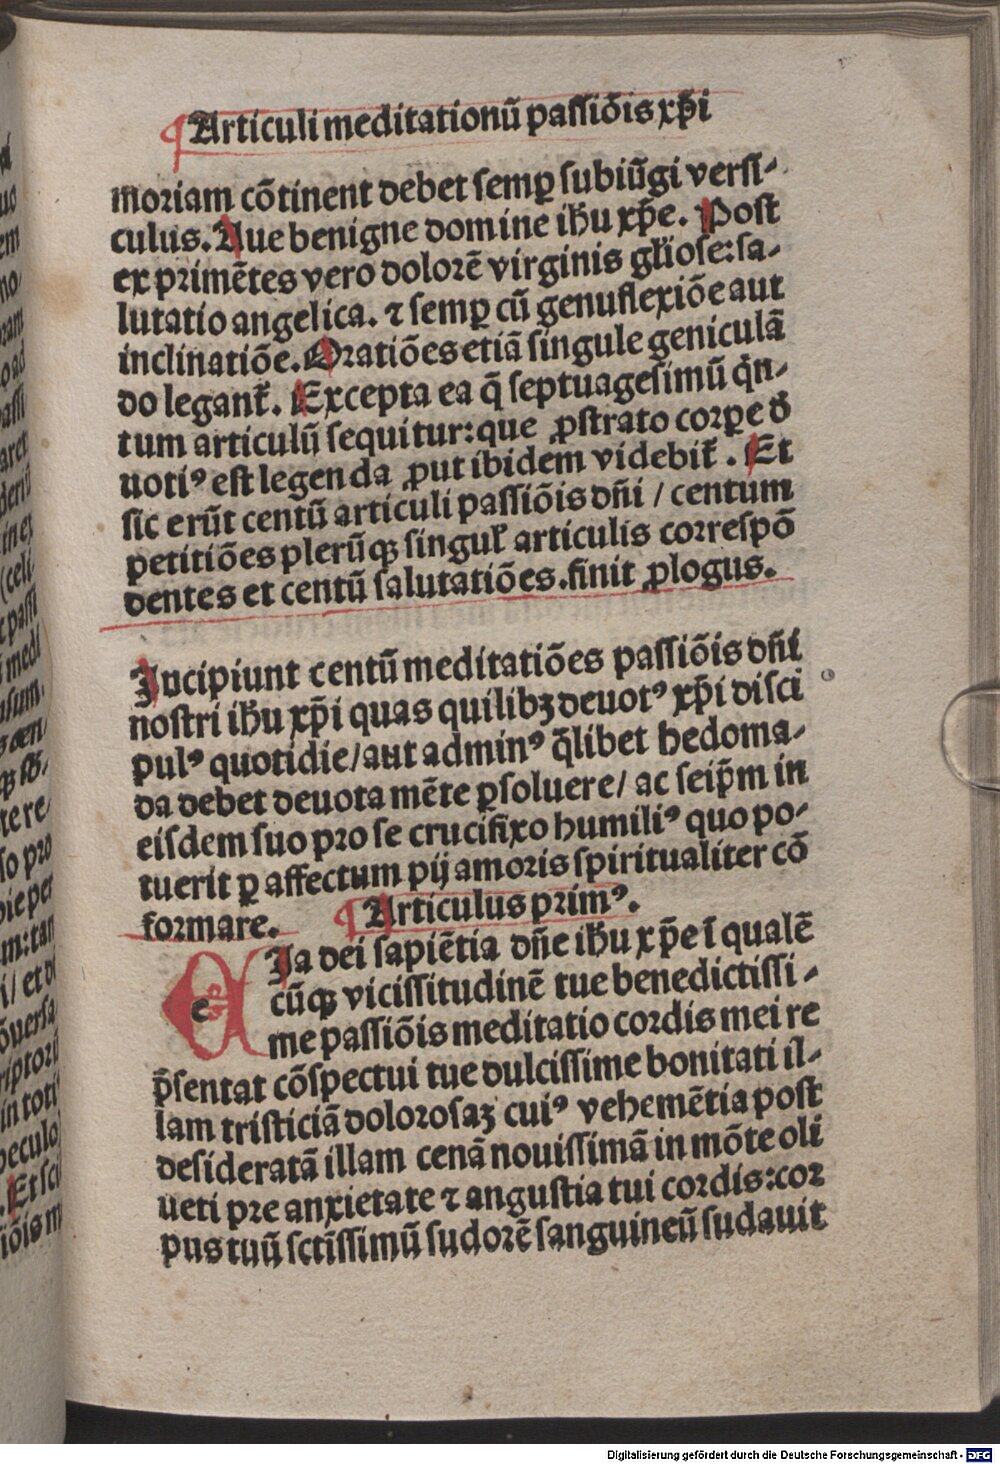 ¶Articuli meditationū passiōis xp̄i
moriam cōtinent debet semꝑ subiūgi versi-
culus. Aue benigne domine ih̄u xp̄e. Post
exprimētes vero dolorē virginis gl̄iose: sa-
lutatio angelica. ⁊ semꝑ cū genuflexiōe aut
inclinatiōe. Oratiōes etiā singule geniculā
do legant᷑. Excepta ea q̄ septuagesimū q̇n-
tum articulū sequitur: que ꝓstrato corꝑe d̄
uotiꝰ est legenda ꝓut ibidem videbit᷑. Et
sic erūt centū articuli passiōis dn̄i / centum
petitiōes plerūqꝫ singul᷑ articulis correspō
dentes et centū salutatiōes. finit ꝓlogus.
Incipiunt centū meditatiōes passiōis dn̄i
nostri ih̄u xp̄i quas quilibꝫ deuotꝰ xp̄i disci
pulꝰ quotidie / aut ad minꝰ q̄libet hedoma-
da debet deuota mēte ꝑsoluere / ac seip̄m in
eisdem suo pro se crucifixo humiliꝰ quo po-
tuerit ꝑ affectum pij amoris spiritualiter cō
formare. ¶Articulus primꝰ.
eIa dei sapiētia dn̄e ih̄u xp̄e ī qualē
cūqꝫ vicissitudinē tue benedictissi-
me passiōis meditatio cordis mei re
p̄sentat cōspectui tue dulcissime bonitati il-
lam tristiciā dolorosaꝫ cuiꝰ vehemētia post
desideratā illam cenā nouissimā in mōte oli
ueti pre anxietate ⁊ angustia tui cordis: cor
pus tuū sctīssimū sudorē sanguineū sudauit
Digitalisierung gefördert durch die Deutsche Forschungsgemeinschaft - DFG